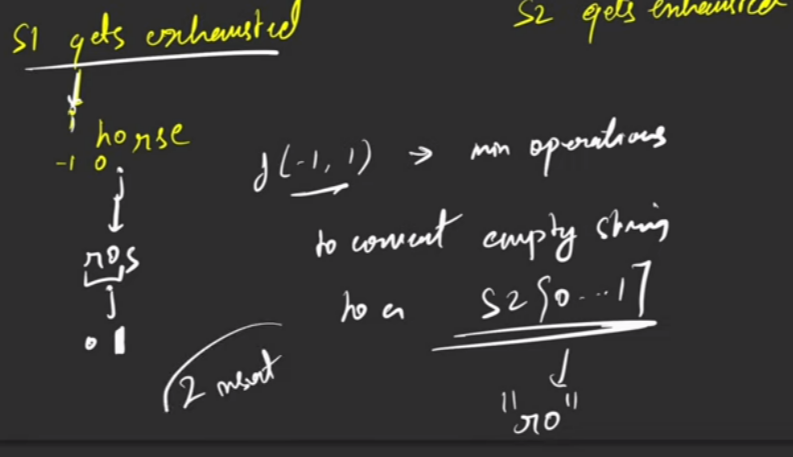 S1 gets exhausted
S2 gets exhausted
i
horse
-1 0
j
ros
j
0 1
f(-1, 1) → min operations
to convert empty string
to a S2[0...1]
2 insert
"ro"